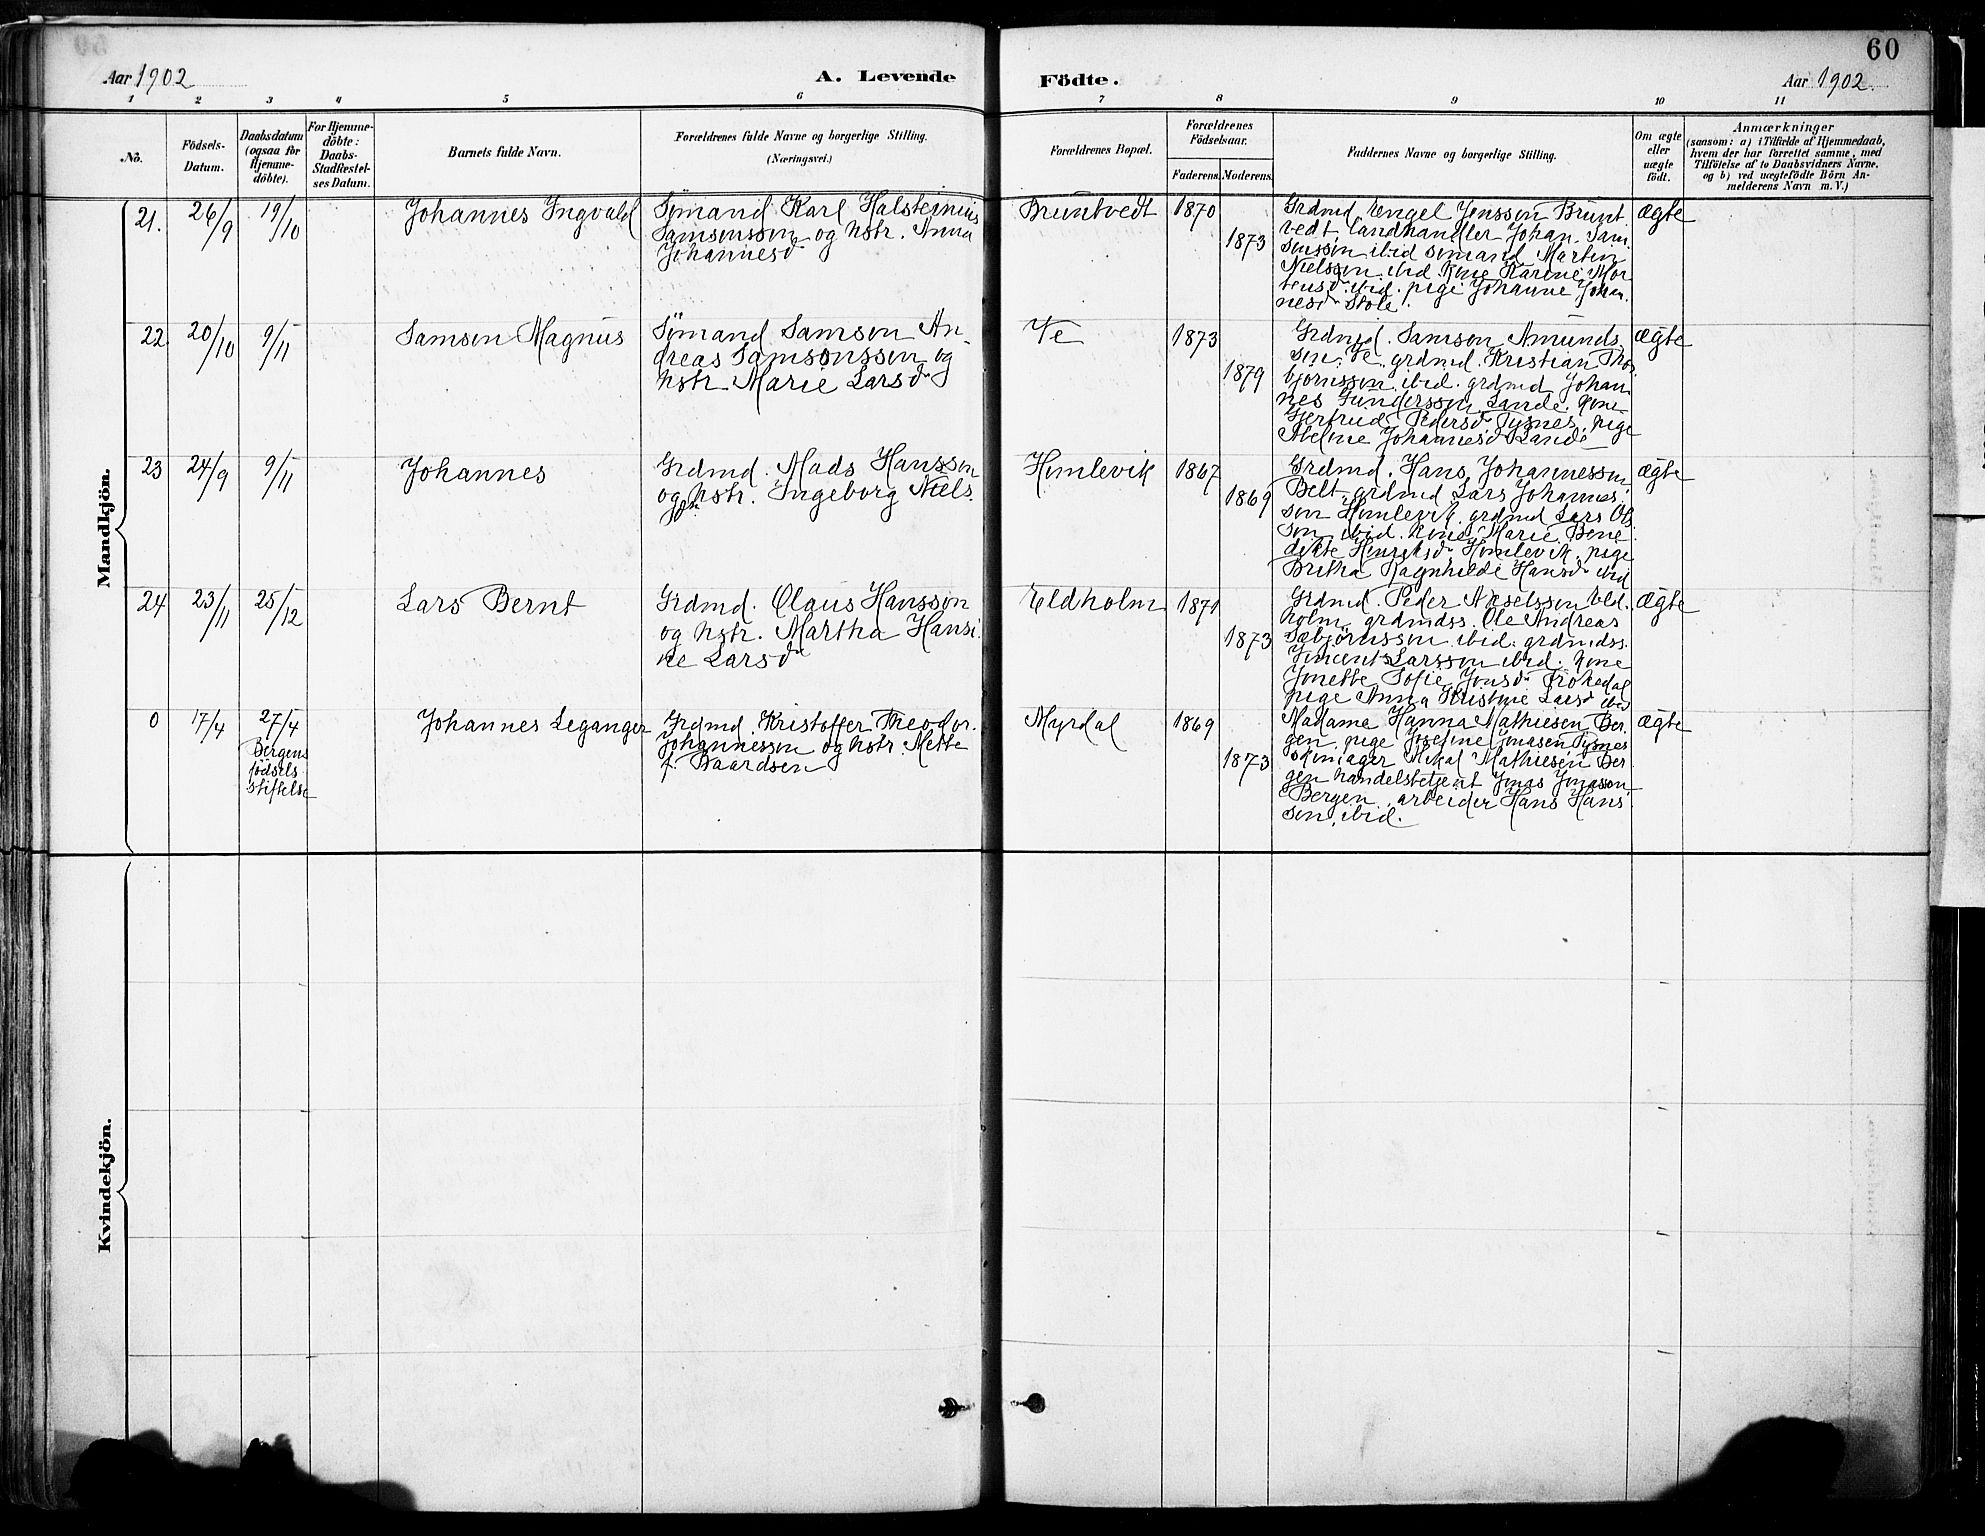 60
Aar 1902
A. Levende
Födte.
Aar 1902.
1 2 3 4 5 6 7 8 9 10 11
No.
Födsels-
Datum.
Daabsdatum
(ogsaa for
Hjemme-
döbte).
For Hjemme-
döbte:
Daabs-
Stadfæstel-
ses Datum.
Barnets fulde Navn.
Forældrenes fulde Navne og borgerlige Stilling.
(Næringsvei.)
Forældrenes Bopæl.
Forældrenes
Födselsaar.
Faderens.
Moderens.
Faddernes Navne og borgerlige Stilling.
Om ægte
eller
uægte
födt.
Anmærkninger
(saasom: a) i Tilfælde af Hjemmedaab,
hvem der har forrettet samme, med
Tilföielse af to Daabsvidners Navne,
og b) ved uægtefödte Börn An-
melderens Navn m. V.)
Mandkjön.
21.
26/9
19/10
Johannes Ingvald
Sømand Karl Halsteinius
Samsonsson og hstr. Anna
Johannesd
Bruntvedt
1870
1873
Grdmd Engel Jensson Brunt
vedt, landhandler Johan Sam
sonsson ibid sømand Martin
Nielssen ibid. kone Karine Mor
tensd. ibid. pige Johanne Johan.
nesd Støle.
ægte
22
20/10
9/11
Samson Magnus
Sømand Samson An-
dreas Samsonssen og
hstr. Marie Larsd
Ve
1873
1879
Grdmd. Samson Amunds
sen Ve grdmd. Kristian Thor
bjørnssen ibid. grdmd Johan
nes Gunderssen Lande. kone
Gjertrud Pedersd Tysnes, pige
Abeline Johannesd Lande
ægte
23
24/9
9/11
Johannes
Grdmd. Mads Hanssen
og hstr. Ingeborg Niels
d
Humlevik
1867
1869
Grdmd. Hans Johannessen
Belt, grdmd Lars Johannes
sen Humlevik grdmd Lars Ols
sen ibid. kone Marie Bene
dikte Henriksd Humlevik. pige
Britha Ragnhilde Hansd ibid
ægte
24
23/11
25/12
Lars Bernt
Grdmd. Olaus Hansson
og hstr. Martha Hansi
ne Larsd
Eldholm
1871
1873
Grdmd. Peder Nielssen Eld.
holm grdmdss. Ole Andreas
Sæbjørnssen ibid. grdmdss.
Vincents Larssen ibid. kone
Jonette Sofie Jonsd Frøkedal
pige Anna Kristine Larsd ibid
ægte
0
17/4
27/4
Bergens
födsels
stiftelse
Johannes Leganger
Grdmd. Kristoffer Theodor.
Johannessen og hstr. Mette
f. Baardsen
Myrdal
1869
1873
Madame Hanna Mathiesen Ber
gen, pige Josefine Jonasen Tysnes
skomager Mikal Mathiesen Ber
gen handelsbetjent Jonas Jonasson
Bergen, arbeider Hans Hans
sen, ibid.
ægte
Kvindekjön.